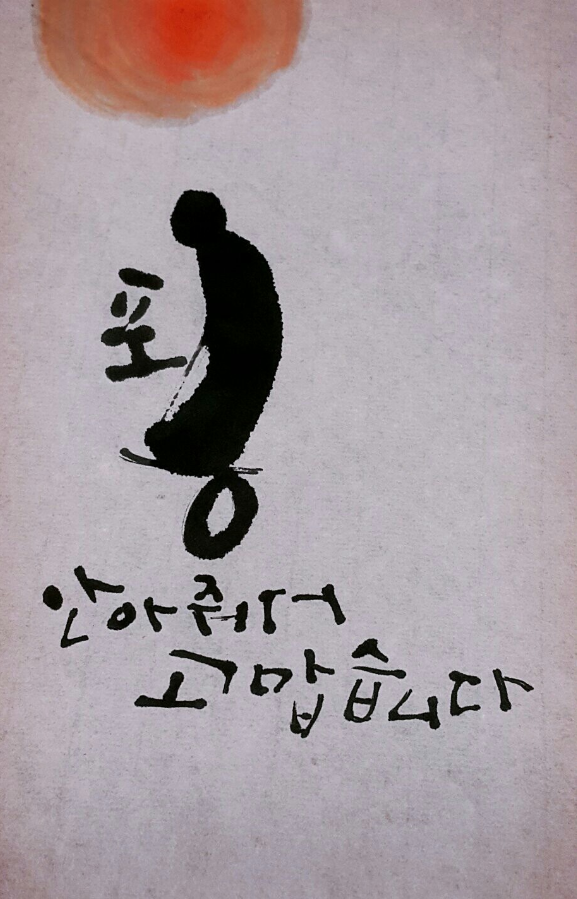 포옹
안아줘서
고맙습니다